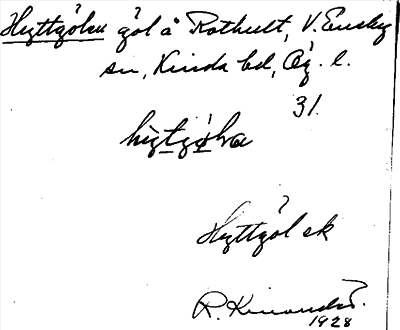 Hyttgölen göl å Rothult, V. Eneby
sn, Kinda hd, Ög. l.
31.
Hyttgöl ek
1928